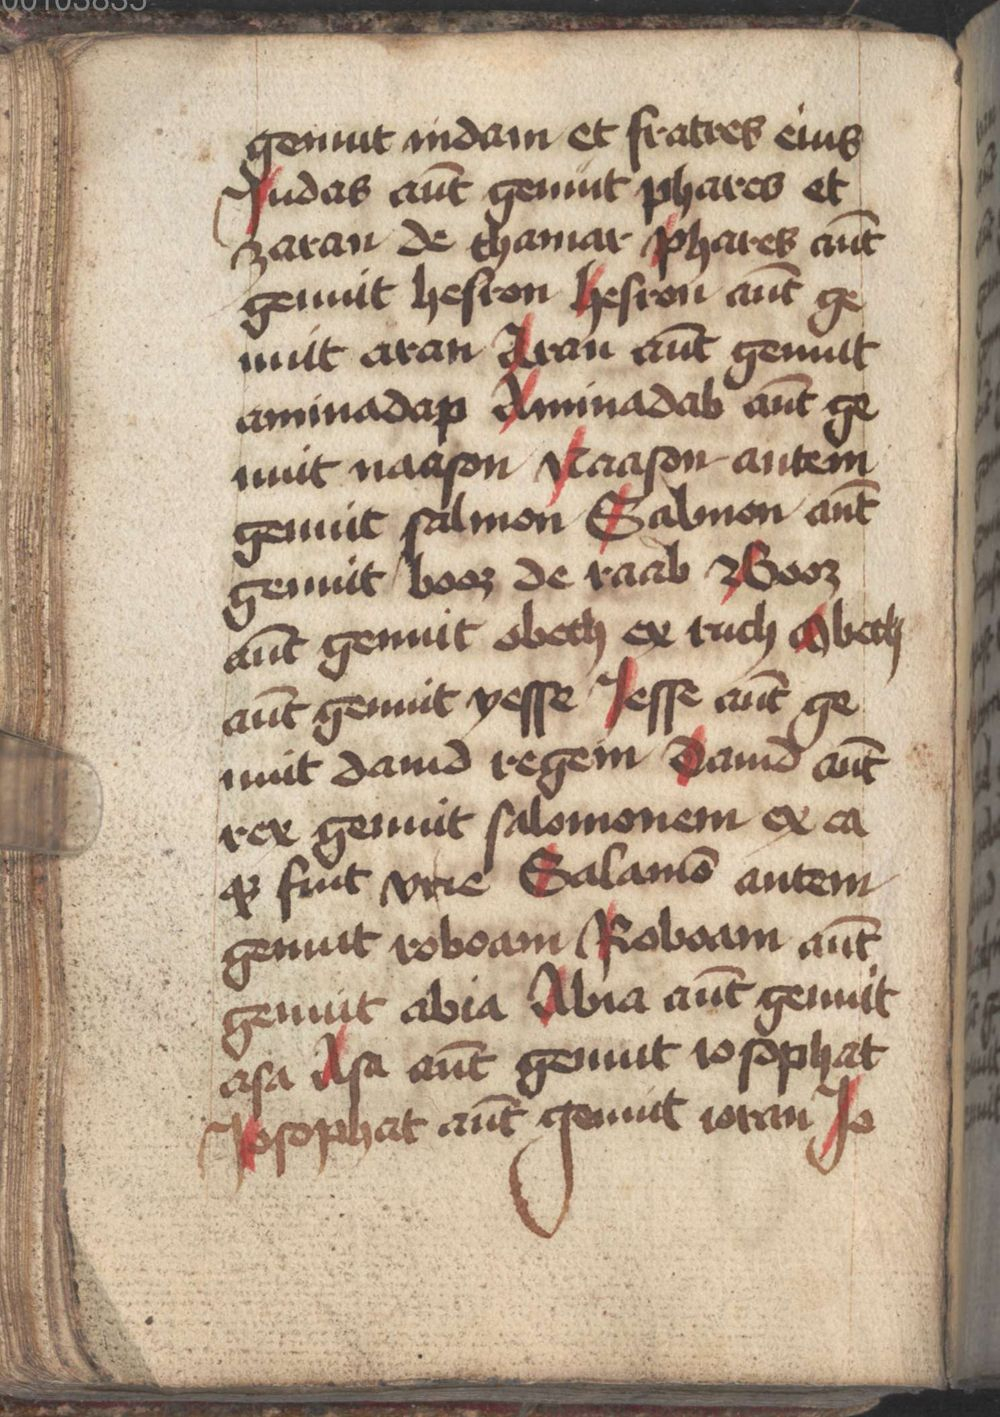 00103835
genuit iudam et fratres eius
Judas aūt genuit phares et
zaran de thamar Phares aūt
genuit hesron Hesron aūt ge
nuit aran Aran aūt genuit
aminadap Aminadab aūt ge
nuit naason Naason autem
genuit salmon Salmon aūt
genuit booz de raab Booz
aūt genuit obeth ex ruth Obeth
aūt genuit yesse Jesse aūt ge
nuit dauid regem Dauid aūt
rex genuit salomonem ex ea
fuit vrie Salamō autem
genuit roboam Roboam aūt
genuit abia Abia aūt genuit
asa Asa aūt genuit iosophat
Josophat aūt genuit ioran Jo